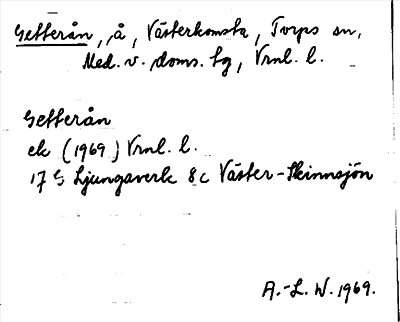 Getterån, å, Västerkomsta, Torps sn,
Med. v. doms. tg, Vrnl. l.
Getterån
ek (1969) Vrnl. l.
17 G Ljungaverk 8c Väster-Skinnsjön
A.-L. W. 1969.